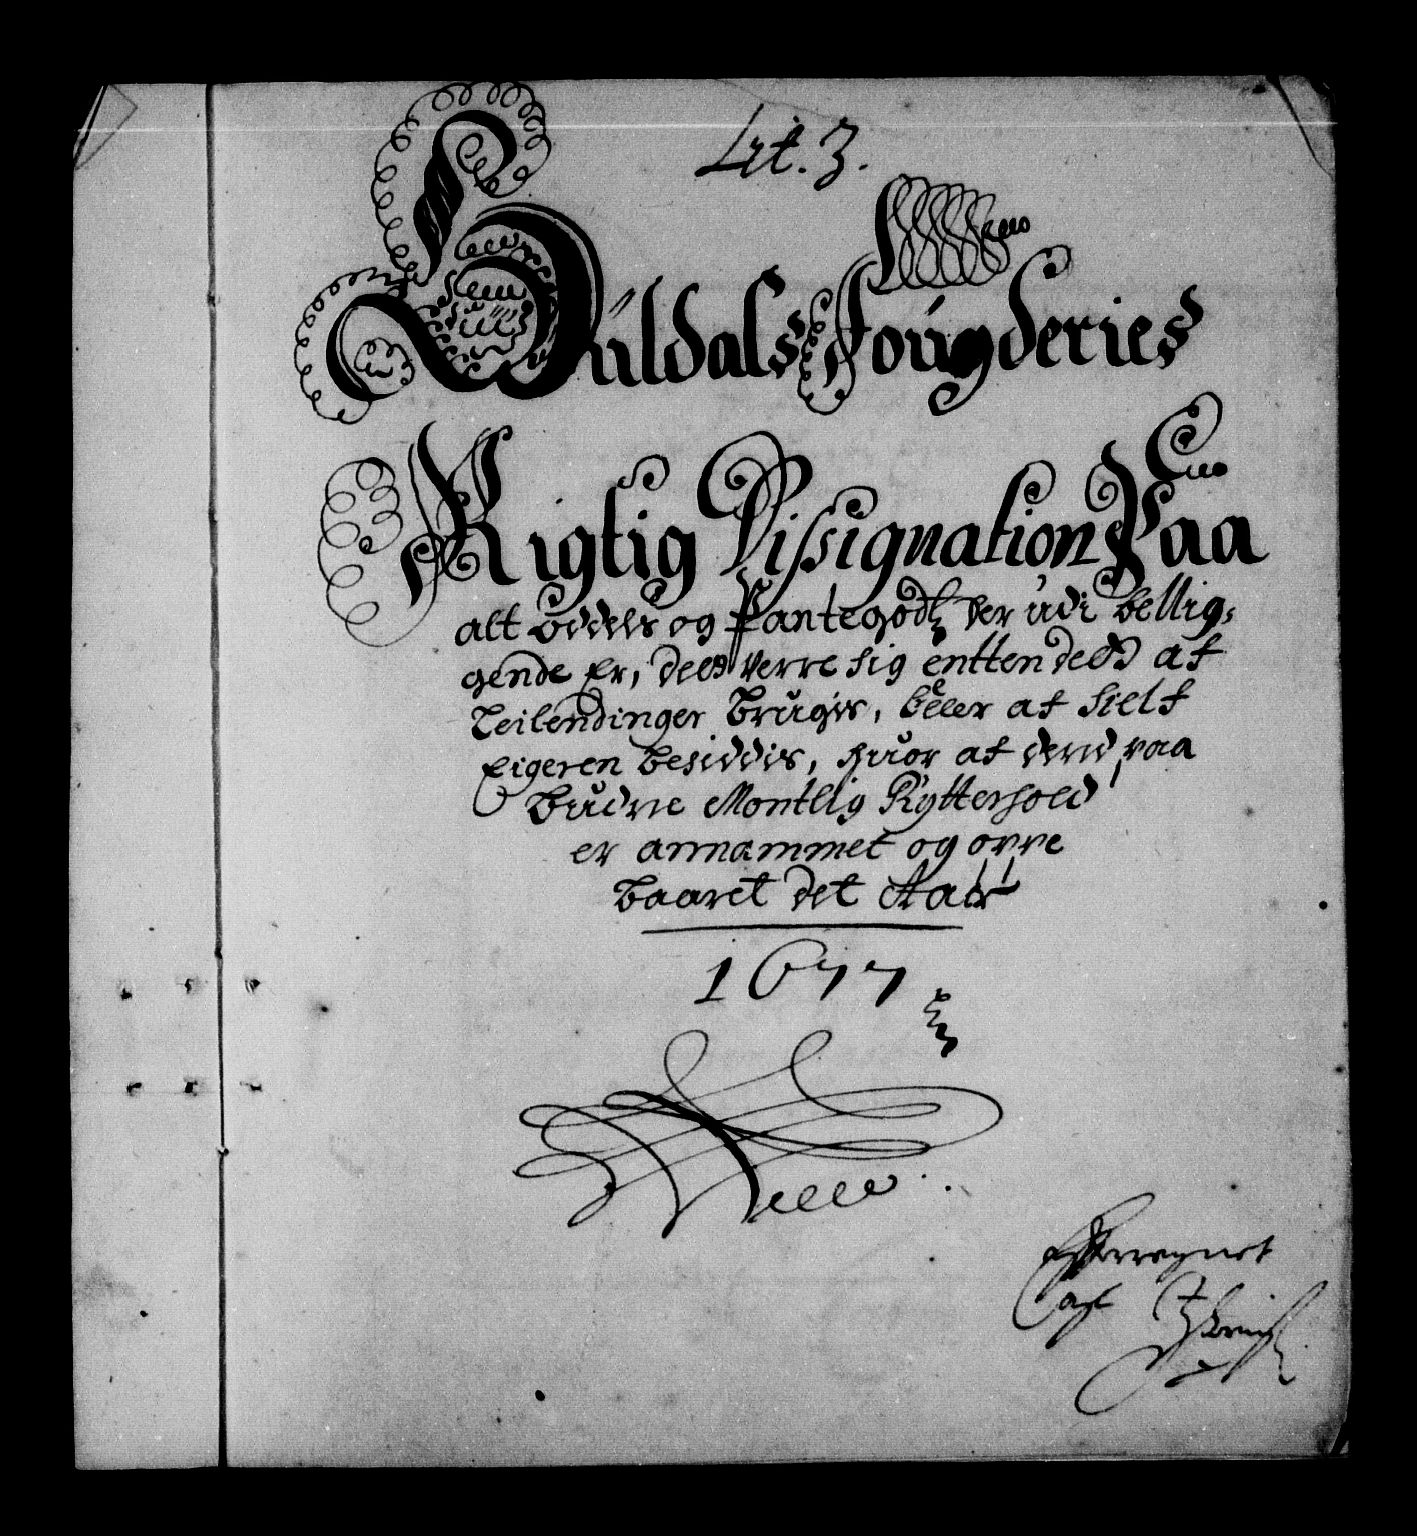 Lit. 3.
Guldals Fougderies
Rigtig Dissignation Paa
alt Oddels og Pantegodtz der udi bellig,
gende Er, deed verre sig entten deed af
Leilendinger Brugis, heller af Sielf
Eigeren besiddis, huor af dend paa
budne Montlig Rytterhold
er annammet og opPe
baaret det Aar
1677
Efterregnet
af